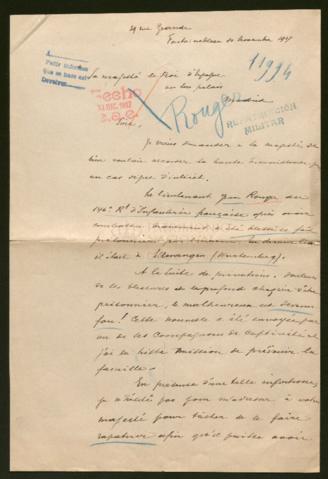 29 rue Grande
Fontainebleau 20 Novembre 1917
A.
Petit informe
que se hace est
11994
Sa majesté le Roi d'Espagne
en son palais
Madrid
DIC. 1917
Rouger
REPATRIACIÓN
MILITAR
Sire,
Je viens demander à sa majesté de
bien vouloir accorder sa haute bienveillance pour
un cas digne d'intérêt.
Le lieutenant Jean Rouger du
146e Rt d'Infanterie française après avoir
été blessé et fait
prisonnier
était à Ellwangen (Wurtemberg).
A la suite de privations, douleur
de ses blessures et le profond chagrin d'être
prisonnier, le malheureux est devenu
fou! Cette nouvelle a été envoyée par
un de ses Compagnons de Captivité et
j'ai eu la triste mission de prévenir la
famille.
En présence d'une telle infortune,
je n'hésite pas pour m'adresser à votre
majesté pour tâcher de le faire
rapatrier afin qu'il puisse avoir